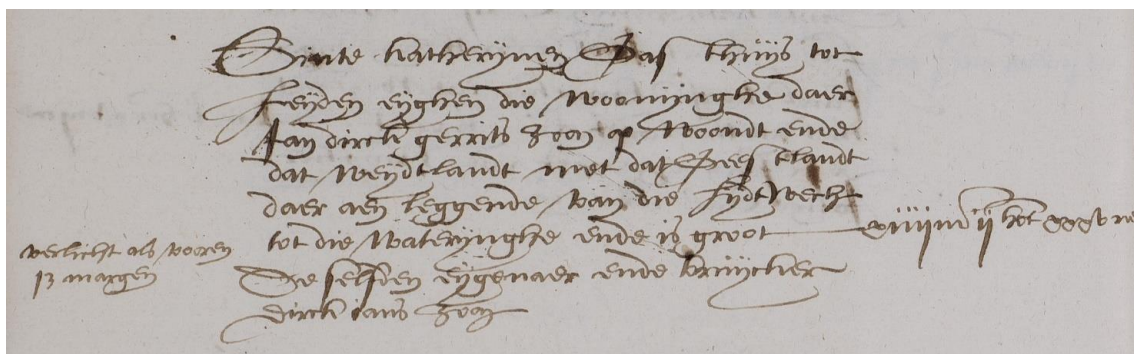 Sinte katherijnen Gas thuijs tot
Leijden eijghen die wooninghe daer
Jan dirck gerrits zoon op woondt ende
dat weijdtlandt met dat Geestlandt
daer aen leggende van die sijdtwech
tot die wateringhe ende is groot xiiii m ii hont xxxv
De selfden eijgenaer ende bruijcker
dirck jans zoon
verlicht als vooren
13 margen